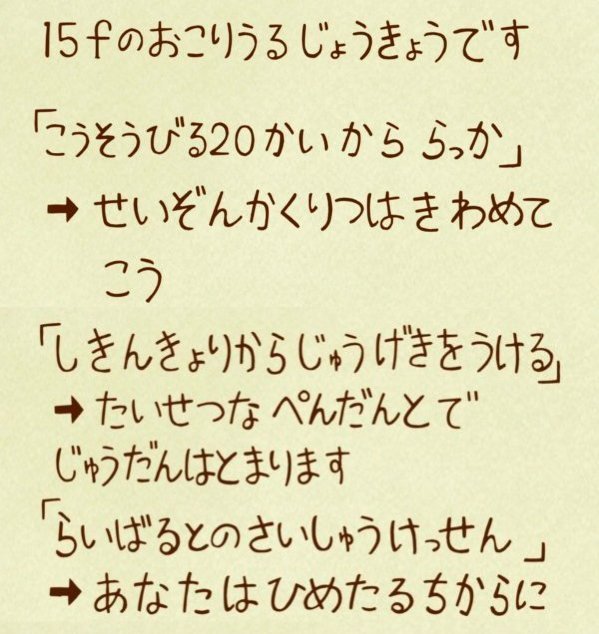 15fのおこりうるじょうきょうです
「こうそうびる20かいから らっか」
➡ せいぞんかくりつはきわめて
こう
「しきんきょりからじゅうげきをうける」
➡ たいせつなぺんだんとで
じゅうだんはとまります
「らいばるとのさいしゅうけっせん」
➡ あなたはひめたるちからに